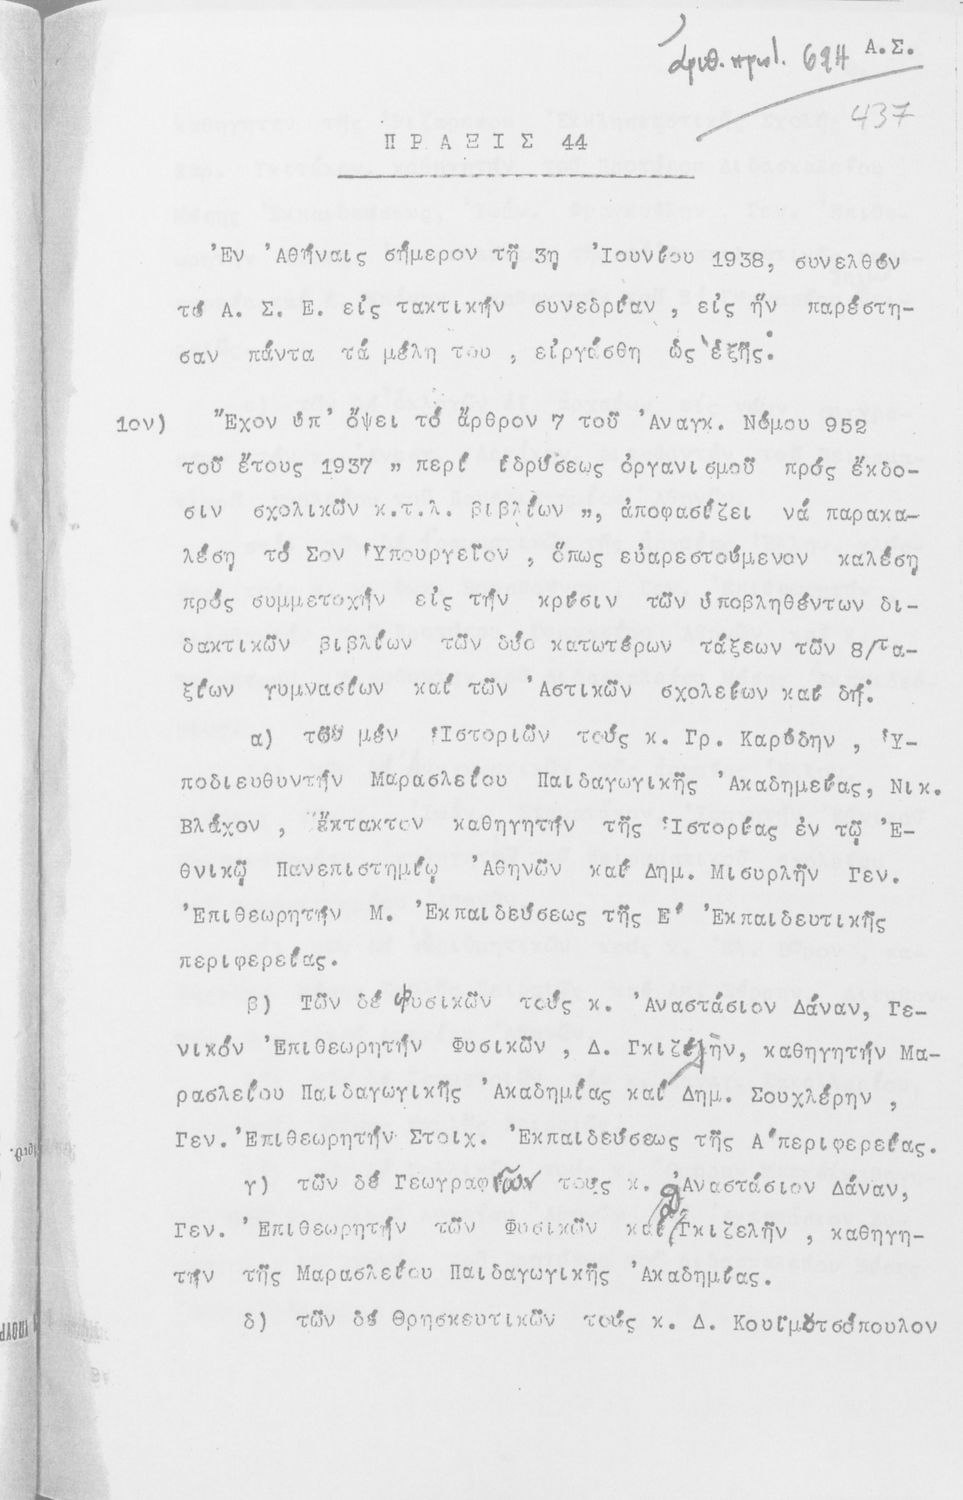 ἀριθ. πρωτ. 624 Α.Σ.
437
ΠΡΑΞΙΣ 44
Ἐν Ἀθήναις σήμερον τῇ 3ῃ Ἰουνίου 1938, συνελθόν
τό Α. Σ. Ε. εἰς τακτικήν συνεδρίαν, εἰς ἥν παρέστη-
σαν πάντα τά μέλη του, εἰργάσθη ὡς ἑξῆς:
1ον) Ἔχον ὑπ' ὄψει τό ἄρθρον 7 τοῦ Ἀναγκ. Νόμου 952
τοῦ ἔτους 1937 „ περί ἱδρύσεως ὀργανισμοῦ πρός ἔκδο-
σιν σχολικῶν κ.τ.λ. βιβλίων „, ἀποφασίζει νά παρακα-
λέσῃ τό Σον Ὑπουργεῖον, ὅπως εὐαρεστούμενον καλέσῃ
πρός συμμετοχήν εἰς τήν κρίσιν τῶν ὑποβληθέντων δι-
δακτικῶν βιβλίων τῶν δύο κατωτέρων τάξεων τῶν 8/τα-
ξίων γυμνασίων καί τῶν Ἀστικῶν σχολείων καί δή:
α) τῶν μέν Ἱστοριῶν τούς κ. Γρ. Καρύδην, Ὑ-
ποδιευθυντήν Μαρασλείου Παιδαγωγικῆς Ἀκαδημείας, Νικ.
Βλάχον, ἔκτακτον καθηγητήν τῆς Ἱστορίας ἐν τῷ Ἐ-
θνικῷ Πανεπιστημίῳ Ἀθηνῶν καί Δημ. Μισυρλῆν Γεν.
Ἐπιθεωρητήν Μ. Ἐκπαιδεύσεως τῆς Ε' Ἐκπαιδευτικῆς
περιφερείας.
β) Τῶν δέ Φυσικῶν τούς κ. Ἀναστάσιον Δάναν, Γε-
νικόν Ἐπιθεωρητήν Φυσικῶν, Δ. Γκιζελῆν, καθηγητήν Μα-
ρασλείου Παιδαγωγικῆς Ἀκαδημίας καί Δημ. Σουχλέρην,
Γεν. Ἐπιθεωρητήν Στοιχ. Ἐκπαιδεύσεως τῆς Α' περιφερείας.
γ) τῶν δέ Γεωγραφιῶν τους κ. Ἀναστάσιον Δάναν,
Γεν. Ἐπιθεωρητήν τῶν Φυσικῶν καί Δ. Γκιζελῆν, καθηγη-
τήν τῆς Μαρασλείου Παιδαγωγικῆς Ἀκαδημίας.
δ) τῶν δέ Θρησκευτικῶν τούς κ. Δ. Κουιμουτσόπουλον